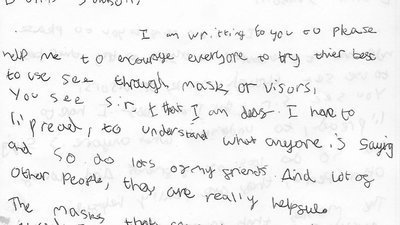 I am writting to you to please
help me to encourage everyone to try thier best
to use see through masks or visors,
You see Sir, I that I am deas. I have to
lipread, to understand what anyone is saying
and so do lots of my friends. And lot of
Other people, they are really helpsul.
The masks that